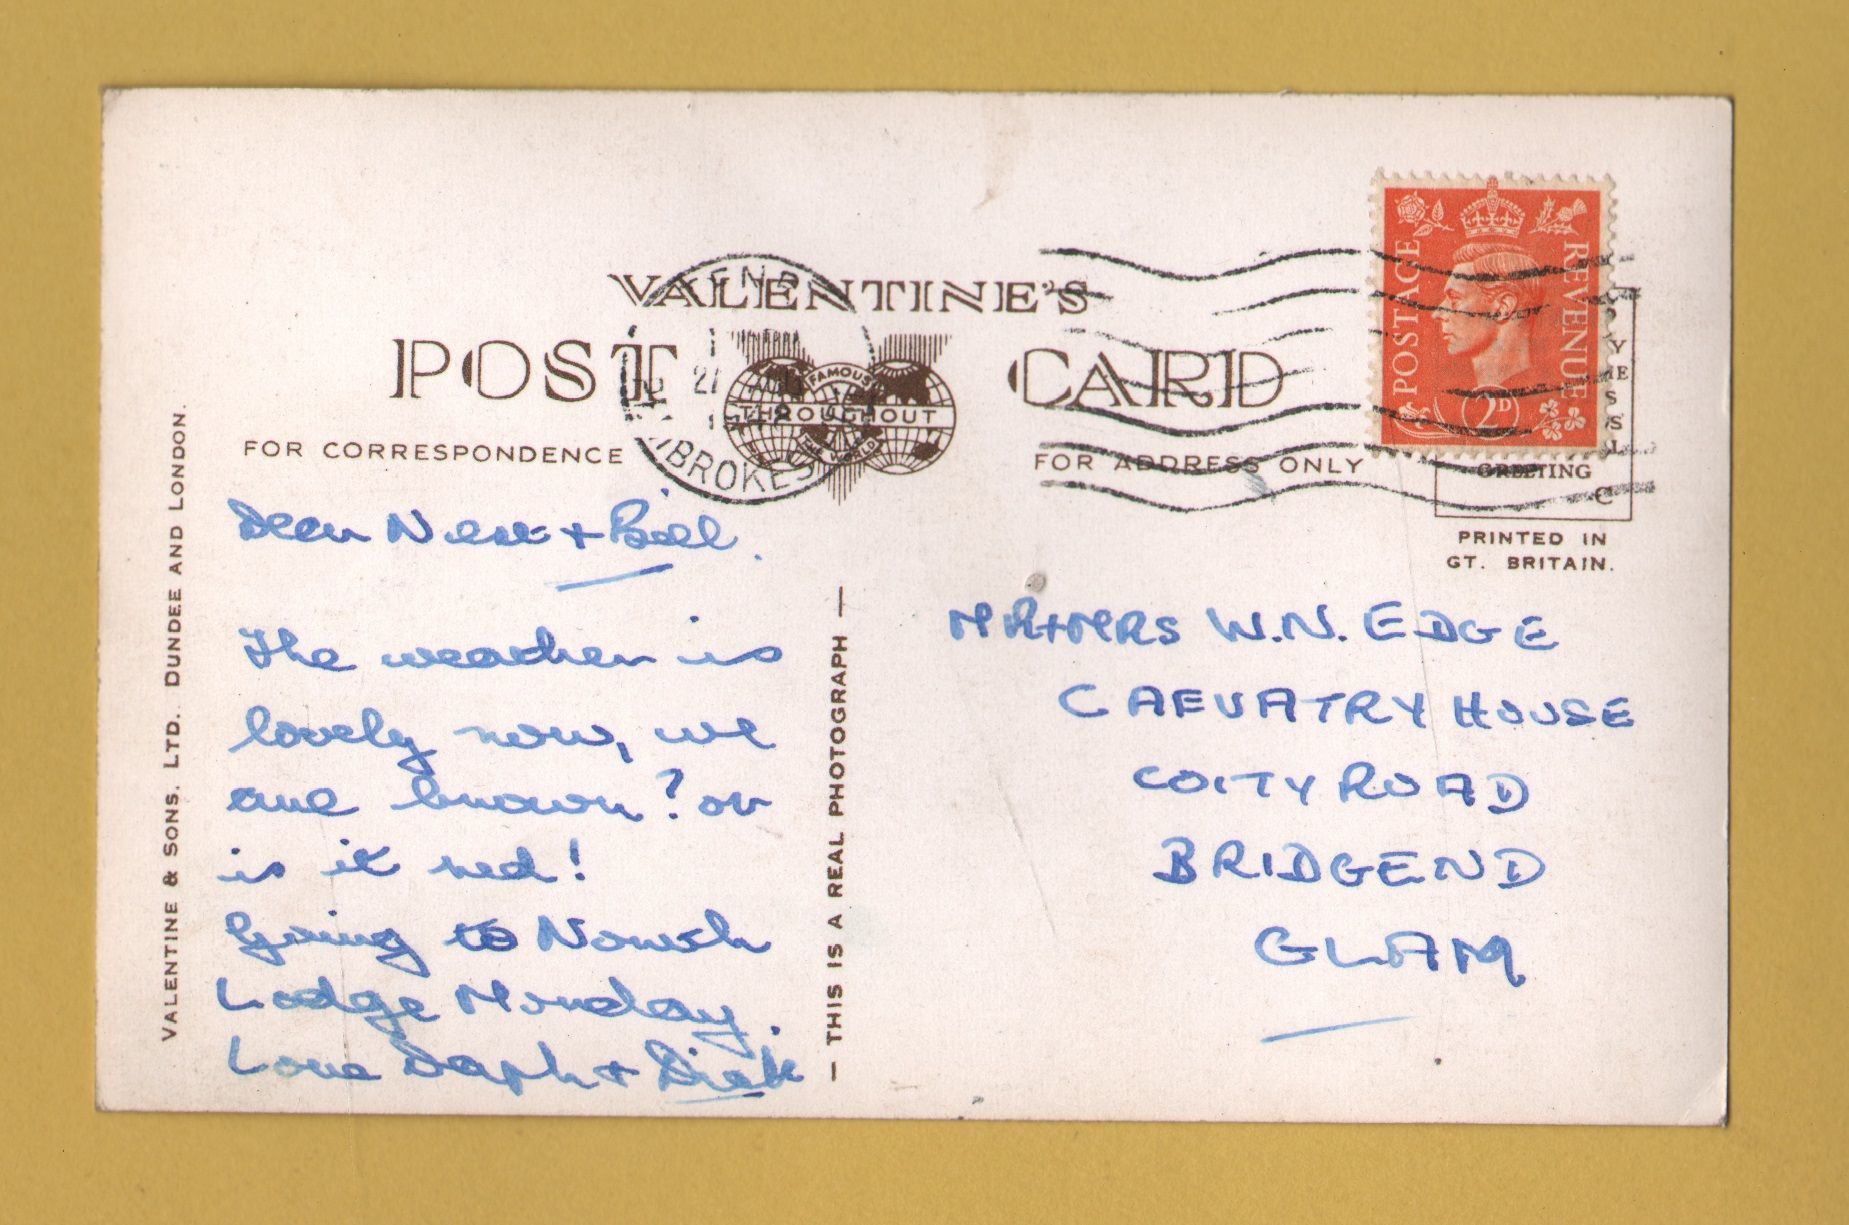 VALENTINE'S
POST CARD
FAMOUS
THROUGHOUT
THE WORLD
FOR CORRESPONDENCE
FOR ADDRESS ONLY
POSTAGE
REVENUE
2D
GREETING
PRINTED IN
GT. BRITAIN.
VALENTINE & SONS. LTD. DUNDEE AND LONDON.
Dear + Bill.
The weather is
lovely now, we
are brown? or
is it red!
Going to
Lodge Monday.
Love Daph + Dick
— THIS IS A REAL PHOTOGRAPH —
MR+MRS W.N. EDGE
HOUSE
COITY ROAD
BRIDGEND
GLAM